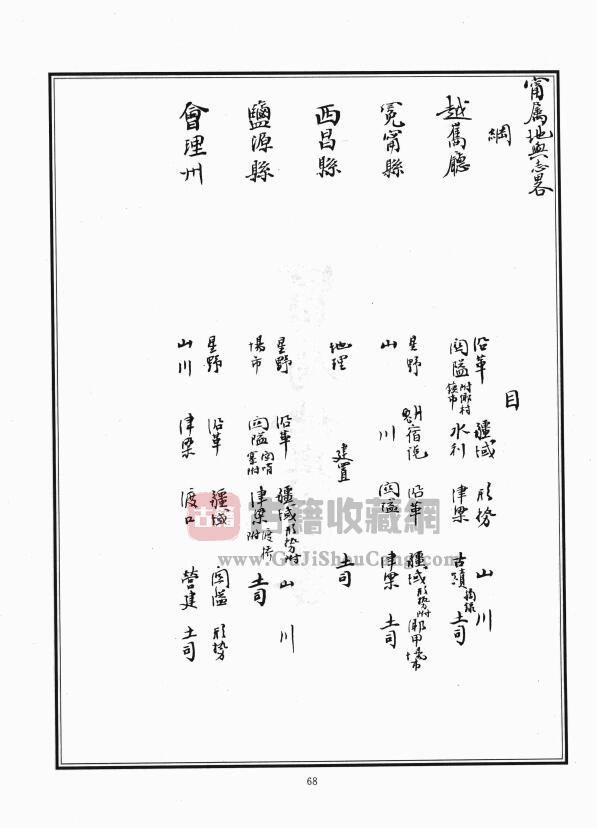 甯属地輿志畧
綱
目
越嶲廳
沿革 疆域 形勢 山川
関隘 附鄉村鎮市 水利 津梁 古蹟 摘錄 土司
冕甯縣
星野 宿說 沿革 疆域 形勢附
山川 関隘 津梁 土司
西昌縣
地理 建置 土司
鹽源縣
星野 沿革 疆域 形勢附 山川
場市 関隘 津梁 土司
會理州
星野 沿革 疆域 関隘 形勢
山川 津梁 渡口 營建 土司
古籍收藏網
www.GuJiShouCang.com
68